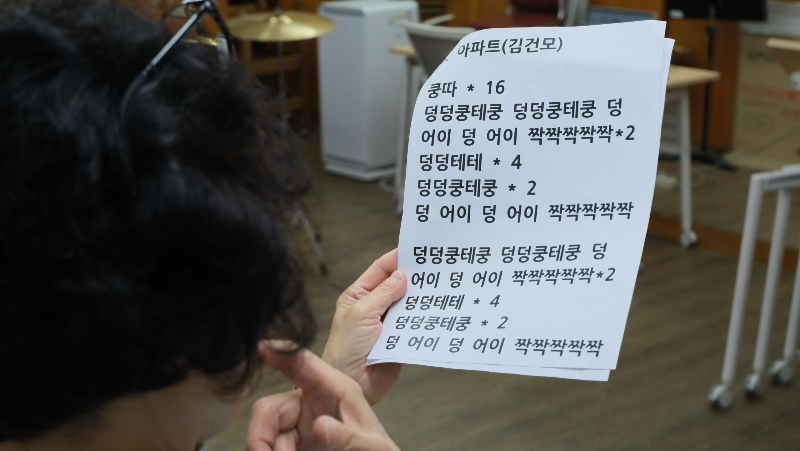 아파트(김건모)
쿵따 * 16
덩덩쿵테쿵 덩덩쿵테쿵 덩
어이 덩 어이 짝짝짝짝짝*2
덩덩테테 * 4
덩덩쿵테쿵 * 2
덩 어이 덩 어이 짝짝짝짝짝
덩덩쿵테쿵 덩덩쿵테쿵 덩
어이 덩 어이 짝짝짝짝짝*2
덩덩테테 * 4
덩덩쿵테쿵 * 2
덩 어이 덩 어이 짝짝짝짝짝